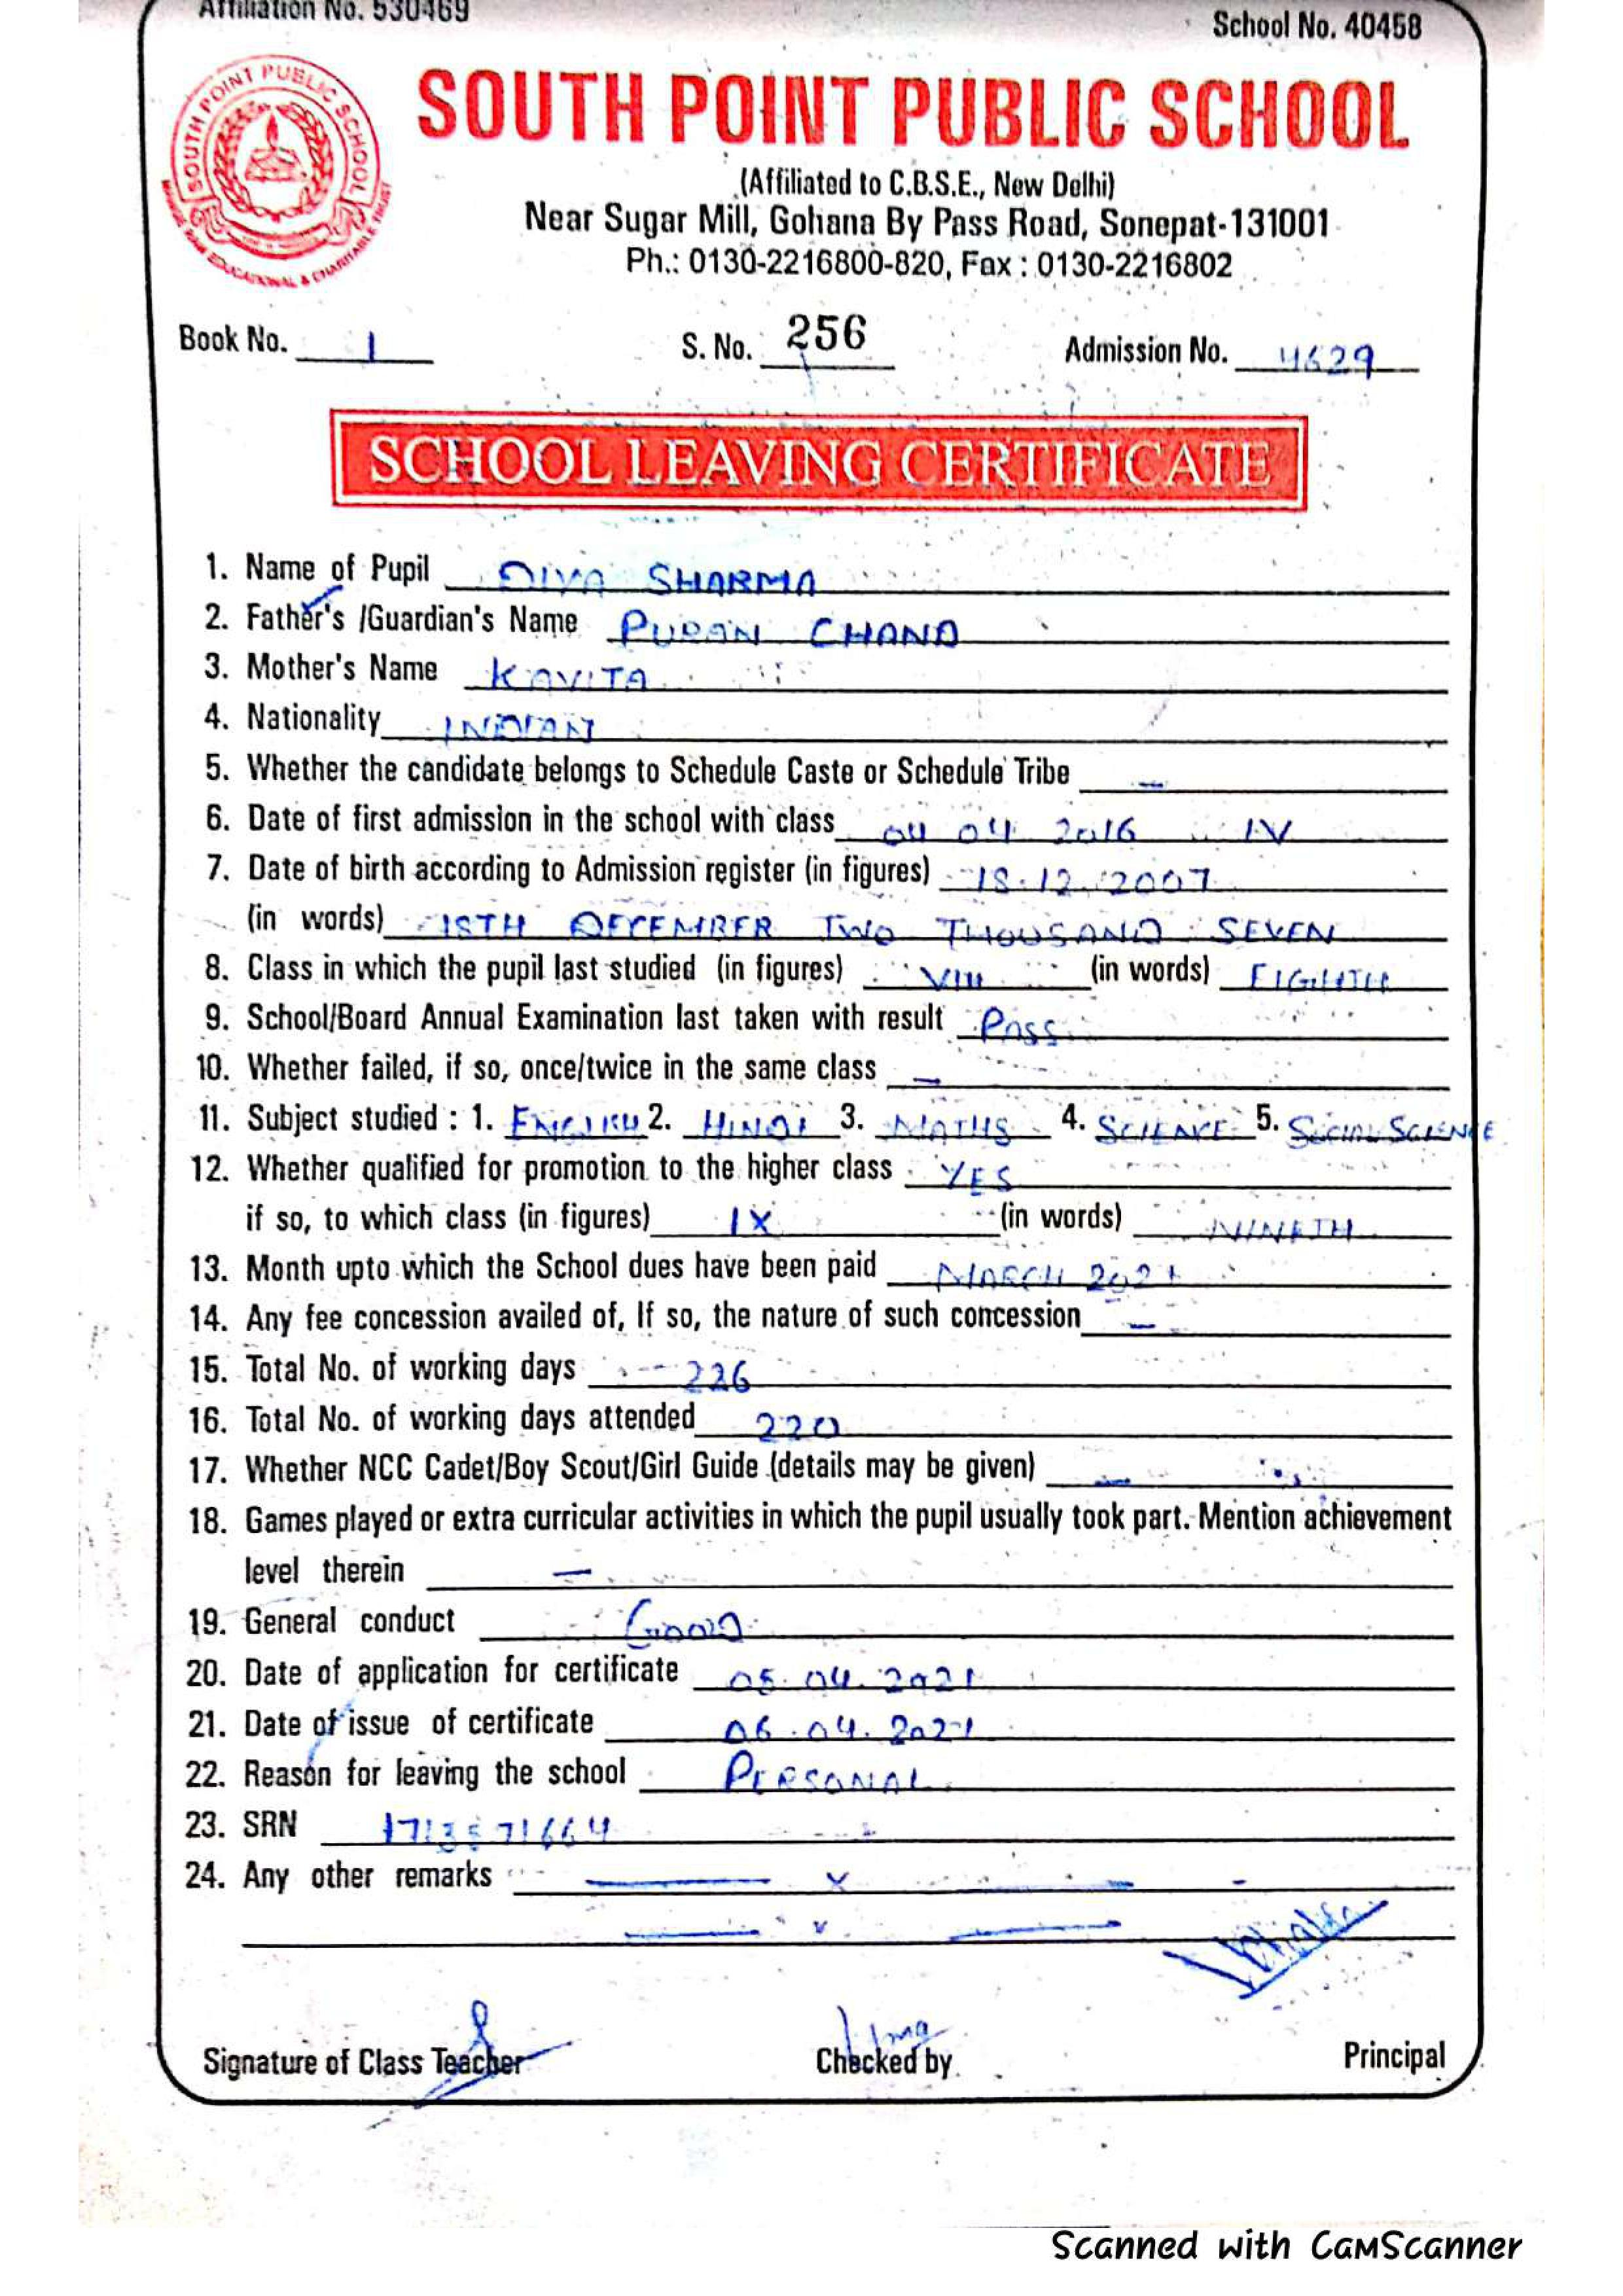 Affiliation No. 530469
School No. 40458
SOUTH POINT PUBLIC SCHOOL
SOUTH POINT PUBLIC SCHOOL
EDUCATIONAL & CHARITABLE TRUST
(Affiliated to C.B.S.E., New Delhi)
Near Sugar Mill, Gohana By Pass Road, Sonepat-131001
Ph.: 0130-2216800-820, Fax : 0130-2216802
Book No. 1 S. No. 256 Admission No. 4629
SCHOOL LEAVING CERTIFICATE
1. Name of Pupil DIYA SHARMA
2. Father's /Guardian's Name PURAN CHAND
3. Mother's Name KAVITA
4. Nationality INDIAN
5. Whether the candidate belongs to Schedule Caste or Schedule Tribe —
6. Date of first admission in the school with class 04 04 2016 IV
7. Date of birth according to Admission register (in figures) 12.2007
(in words) DECEMBER TWO THOUSAND SEVEN
8. Class in which the pupil last studied (in figures) VIII (in words) EIGHTH
9. School/Board Annual Examination last taken with result Pass
10. Whether failed, if so, once/twice in the same class —
11. Subject studied : 1. ENGLISH 2. HINDI 3. MATHS 4. SCIENCE 5. SOCIAL SCIENCE
12. Whether qualified for promotion to the higher class YES
if so, to which class (in figures) IX (in words) NINETH
13. Month upto which the School dues have been paid MARCH 2021
14. Any fee concession availed of, If so, the nature of such concession —
15. Total No. of working days 226
16. Total No. of working days attended 220
17. Whether NCC Cadet/Boy Scout/Girl Guide (details may be given) —
18. Games played or extra curricular activities in which the pupil usually took part. Mention achievement
level therein —
19. General conduct GOOD
20. Date of application for certificate 05.04.2021
21. Date of issue of certificate 06.04.2021
22. Reason for leaving the school PERSONAL
23. SRN
24. Any other remarks — x —
— x —
Signature of Class Teacher Checked by Principal
Scanned with CamScanner